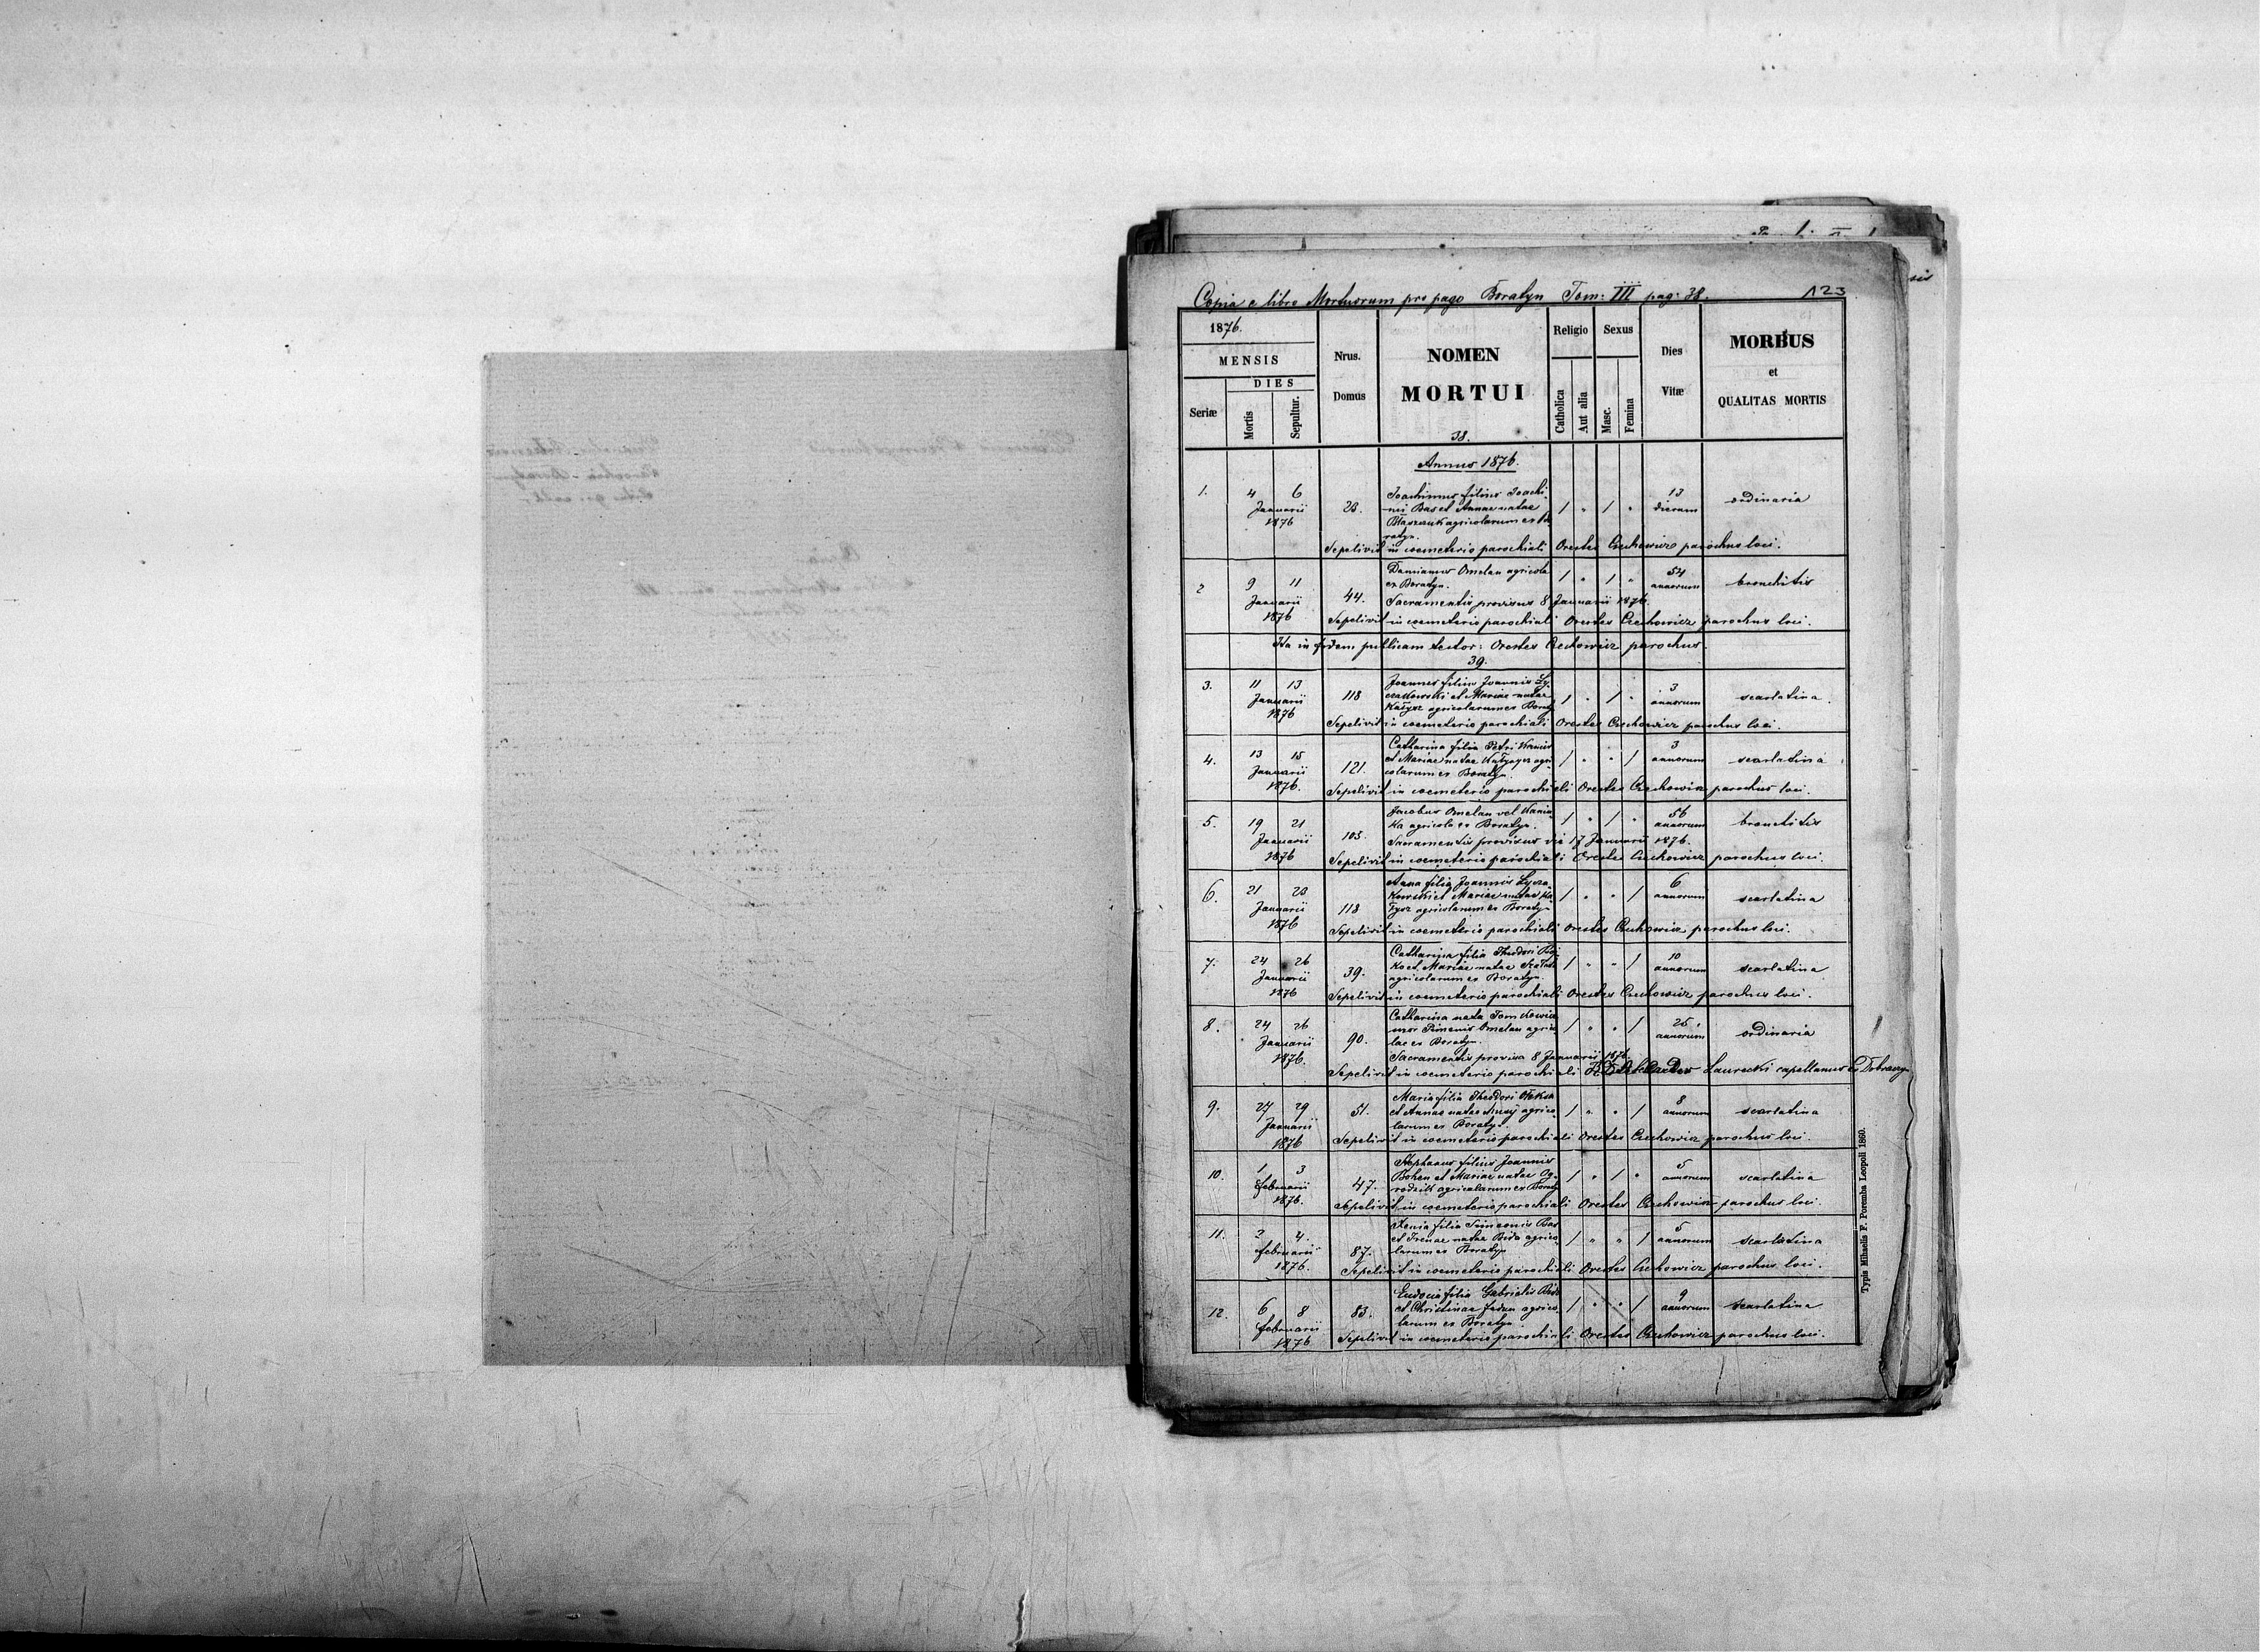 Copia e libro Mortuorum pro pago Boratyn Tom: III pag: 38.
123
1876.
MENSIS
DIES
Seriæ
Mortis
Sepultur.
Nrus.
Domus
NOMEN
MORTUI
Religio
Catholica
Aut alia
Sexus
Masc.
Femina
Dies
Vitæ
MORBUS
et
QUALITAS MORTIS
38.
Annus 1876.
1. 4 6 Joachimus filius Joachi- 13 ordinaria
Januarii 28. mi Bas et Annae natae / " / " dierum
1876 Błaszczuk agricolarum ex Bo
ratyn.
Sepelivit in coemeterio parochiali Orestes Czechowicz parochus loci.
2 9 11 Damianus Omelan agricola / " / " 54 bronchitis
Januarii 44. ex Boratyn. annorum
1876 Sacramentis provisus 8 Januarii 1876.
Sepelivit in coemeterio parochiali Orestes Czechowicz parochus loci.
Ita in fidem publicam testor: Orestes Czechowicz parochus.
39.
3. 11 13 Joannes filius Joannis Ły- 3
Januarii 118 czakowski et Mariae natae / " / " annorum scarlatina
1876 agricolarum ex Borat
Sepelivit in coemeterio parochiali Orestes Czechowicz parochus loci.
4. 13 15 Catharina filia Petri 3
Januarii 121. et Mariae natae agri / " " / annorum scarlatina
1876. colarum ex Boratyn.
Sepelivit in coemeterio parochiali Orestes Czechowicz parochus loci.
5. 19 21 Jacobus Omelan vel 56
Januarii 103. ka agricola ex Boratyn. / " / " annorum bronchitis
1876 Sacramentis provisus die 17 Januarii 1876.
Sepelivit in coemeterio parochiali Orestes Czechowicz parochus loci.
6. 21 23 Anna filia Joannis Łycza- 6
Januarii 118 kowski et Mariae natae / " " / annorum scarlatina
1876 agricolarum ex Boratyn
Sepelivit in coemeterio parochiali Orestes Czechowicz parochus loci.
7. 24 26 Catharina filia Theodori 10
Januarii 39. et Mariae natae / " " / annorum scarlatina
1876 agricolarum ex Boratyn.
Sepelivit in coemeterio parochiali Orestes Czechowicz parochus loci.
8. 24 26 Catharina nata 25
Januarii 90. uxor Omelan agrico / " " / annorum ordinaria
1876. lae ex Boratyn.
Sacramentis provisa 8 Januarii 1876.
Sepelivit in coemeterio parochiali Laurecki capellanus
9. 27 29 Maria filia Theodori 8
Januarii 51. et Annae natae agrico / " " / annorum scarlatina
1876 larum ex Boratyn
Sepelivit in coemeterio parochiali Orestes Czechowicz parochus loci.
10. 1 3 Stephanus filius Joannis 5
Februarii 47. Bohen et Mariae natae Og- / " / " annorum scarlatina
1876. rodnik agricolarum ex Borat
Sepelivit in coemeterio parochiali Orestes Czechowicz parochus loci.
11. 2 4. Xenia filia Simeonis Bas 5
Februarii 87. et Irenae natae Bida agrico / " " / annorum scarlatina
1876. larum ex Boratyn
Sepelivit in coemeterio parochiali Orestes Czechowicz parochus loci.
12. 6 8 Eudocia filia Gabrielis Bida 9
Februarii 83. et Christinae Fedun agrico- / " " / annorum scarlatina
1876 larum ex Boratyn
Sepelivit in coemeterio parochiali Orestes Czechowicz parochus loci.
Typis Mihaelis F. Poremba Leopoli 1860.